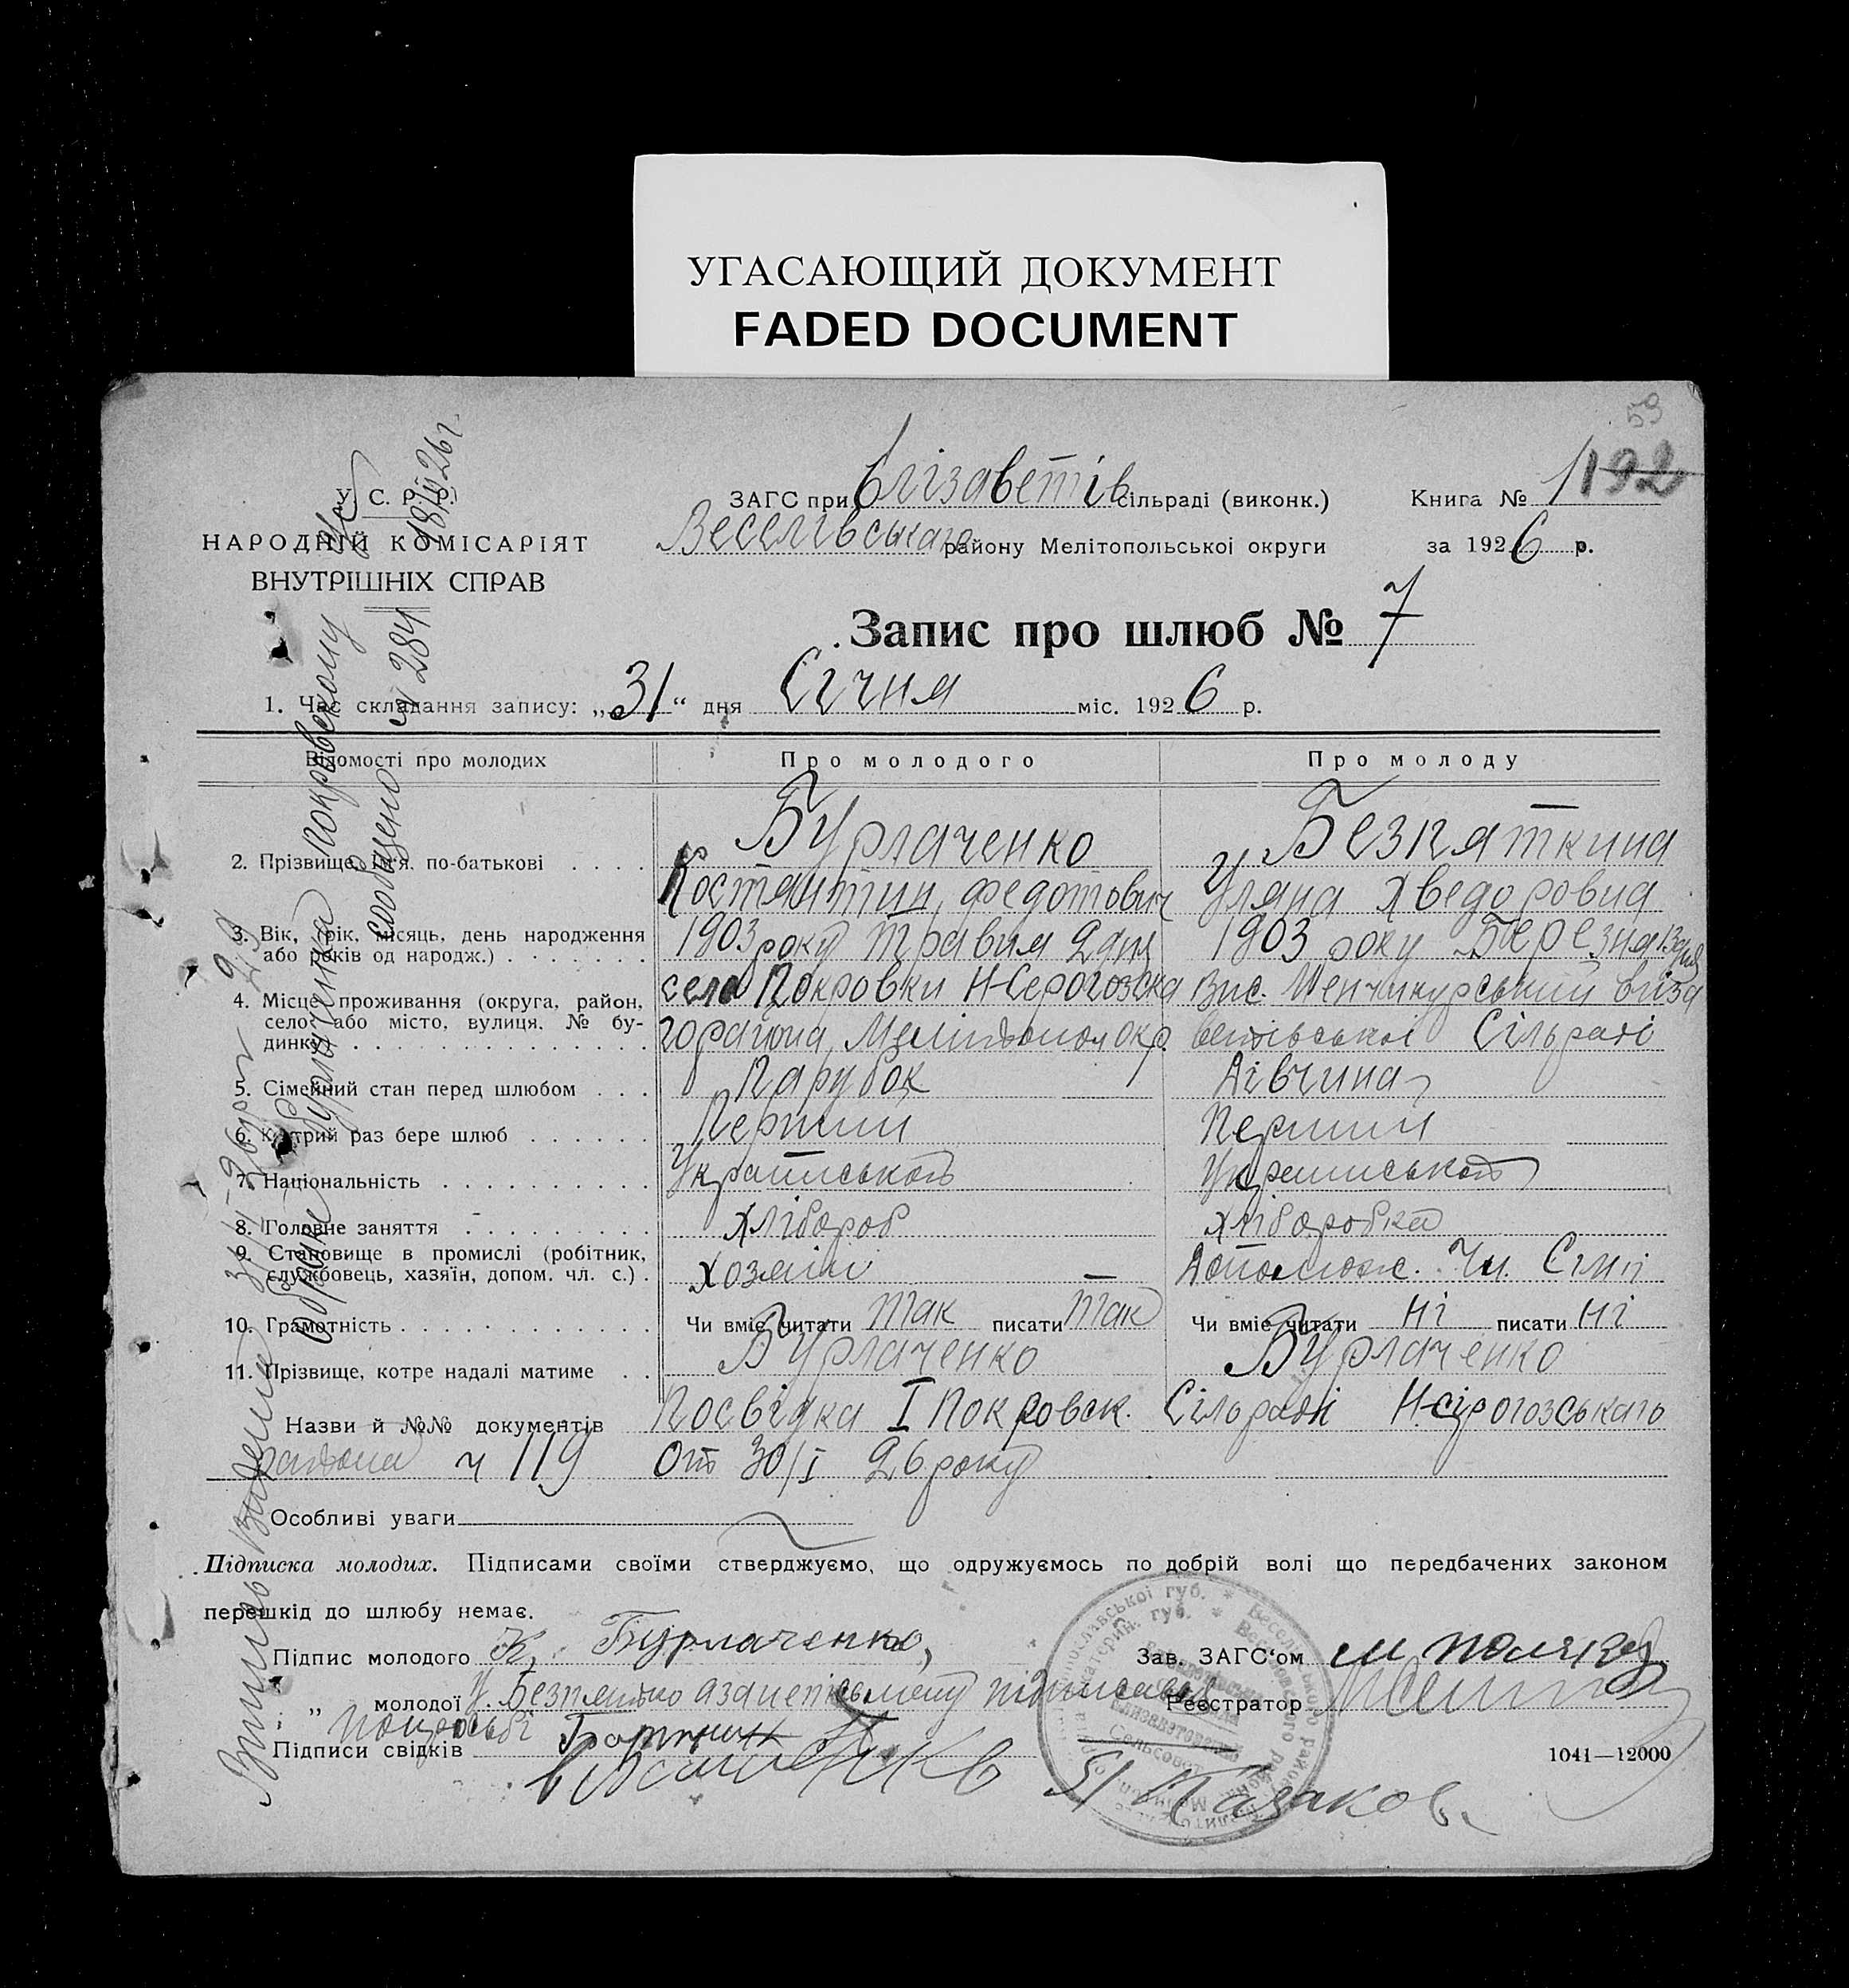 УГАСАЮЩИЙ ДОКУМЕНТ
FADED DOCUMENT
59
У. С. Р. Р.
НАРОДНІЙ КОМІСАРІЯТ
ВНУТРІШНІХ СПРАВ
ЗАГС при Єлізаветів сільраді (виконк.)
Веселівського району Мелітопольської округи
Книга № 1 192
за 1926 р.
Запис про шлюб № 7
1. Час складання запису: „31“ дня Січня міс. 1926 р.
Відомості про молодих Про молодого Про молоду
2. Прізвище, ім'я, по-батькові . . . . Бурлаченко Безпяткина
Костянтин, Федотович Уляна Хведоровна
3. Вік, (рік, місяць, день народження 1903 року Травня 2 дня 1903 року Березня 13 дня
або років од народж.)
4. Місце проживання (округа, район, село Покровки Н-Серогозска Вис. Менчикурський Єліза
село або місто, вулиця, № бу- го района, Мелітопол окр. ветівської Сільраді
динку)
5. Сімейний стан перед шлюбом . . . Парубок Дівчина
6. Котрий раз бере шлюб Перший Перший
7. Національність Українською Українською
8. Головне заняття Хлібороб хліборобка
9. Становище в промислі (робітник,
службовець, хазяїн, допом. чл. с.) . Хозяін Допомож. Чл. Сімії
10. Грамотність Чи вміє читати так писати так Чи вміє читати ні писати ні
11. Прізвище, котре надалі матиме . . Бурлаченко Бурлаченко
Назви й №№ документів Посвідка I Покровск. Сільраді Н-сірогозського
района ч 119 От 30/I 26 року
Особливі уваги
Підписка молодих. Підписами своїми стверджуємо, що одружуємось по добрій волі що передбачених законом
перешкід до шлюбу немає.
Підпис молодого К. Бурлаченко,
„ молодої У. Безпятко а за неписьмену підписався
по просьбі
Підписи свідків
Зав. ЗАГС'ом
Реєстратор
Я Казаков.
1041—12000
Покровскому
сообщено № 284
О браке Бурлаченка